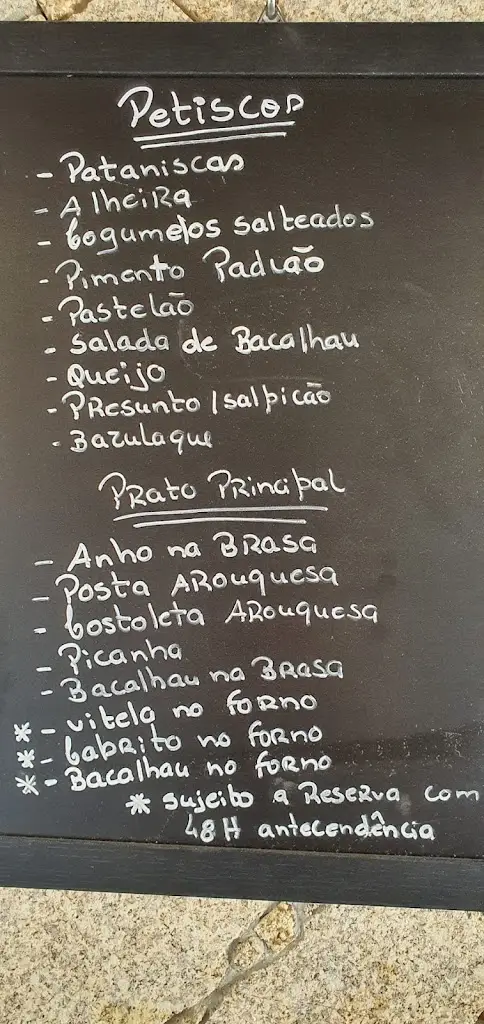 Petiscos
- Pataniscas
- Alheira
- Cogumelos salteados
- Pimento Padrão
- Pastelão
- Salada de Bacalhau
- Queijo
- Presunto / salpicão
- Bazulaque
Prato Principal
- Anho na Brasa
- Posta Arouquesa
- Costoleta Arouquesa
- Picanha
- Bacalhau na Brasa
* - vitela no forno
* - Cabrito no forno
* - Bacalhau no forno
* sujeito a Reserva com
48H antecendência